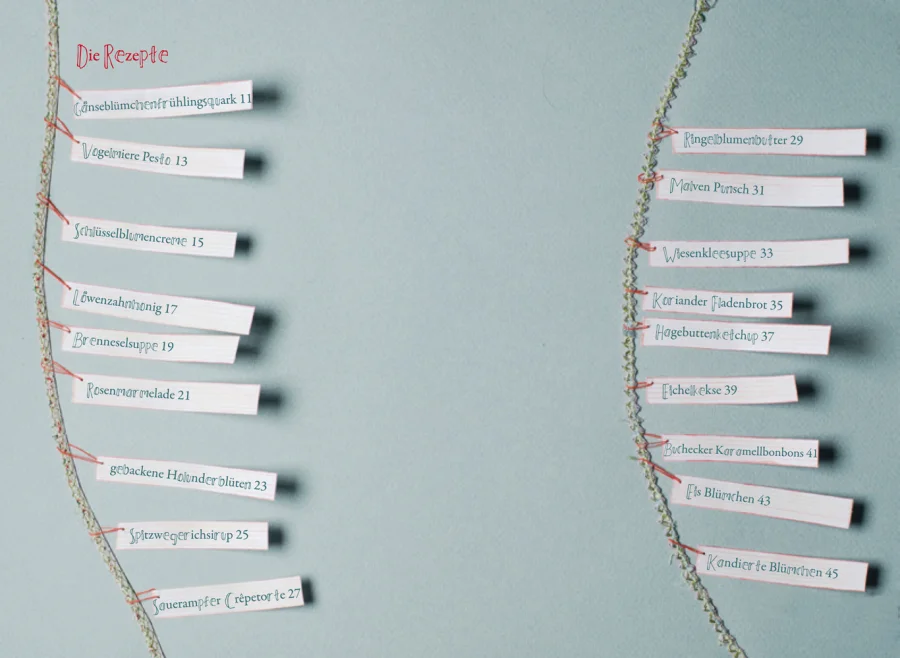 Die Rezepte
Gänseblümchenfrühlingsquark 11
Vogelmiere Pesto 13
Schlüsselblumencreme 15
Löwenzahnhonig 17
Brenneselsuppe 19
Rosenmarmelade 21
gebackene Holunderblüten 23
Spitzwegerichsirup 25
Sauerampfer Crêpetorte 27
Ringelblumenbutter 29
Malven Punsch 31
Wiesenkleesuppe 33
Koriander Fladenbrot 35
Hagebuttenketchup 37
Eichelkekse 39
Buchecker Karamellbonbons 41
Eis Blümchen 43
Kandierte Blümchen 45